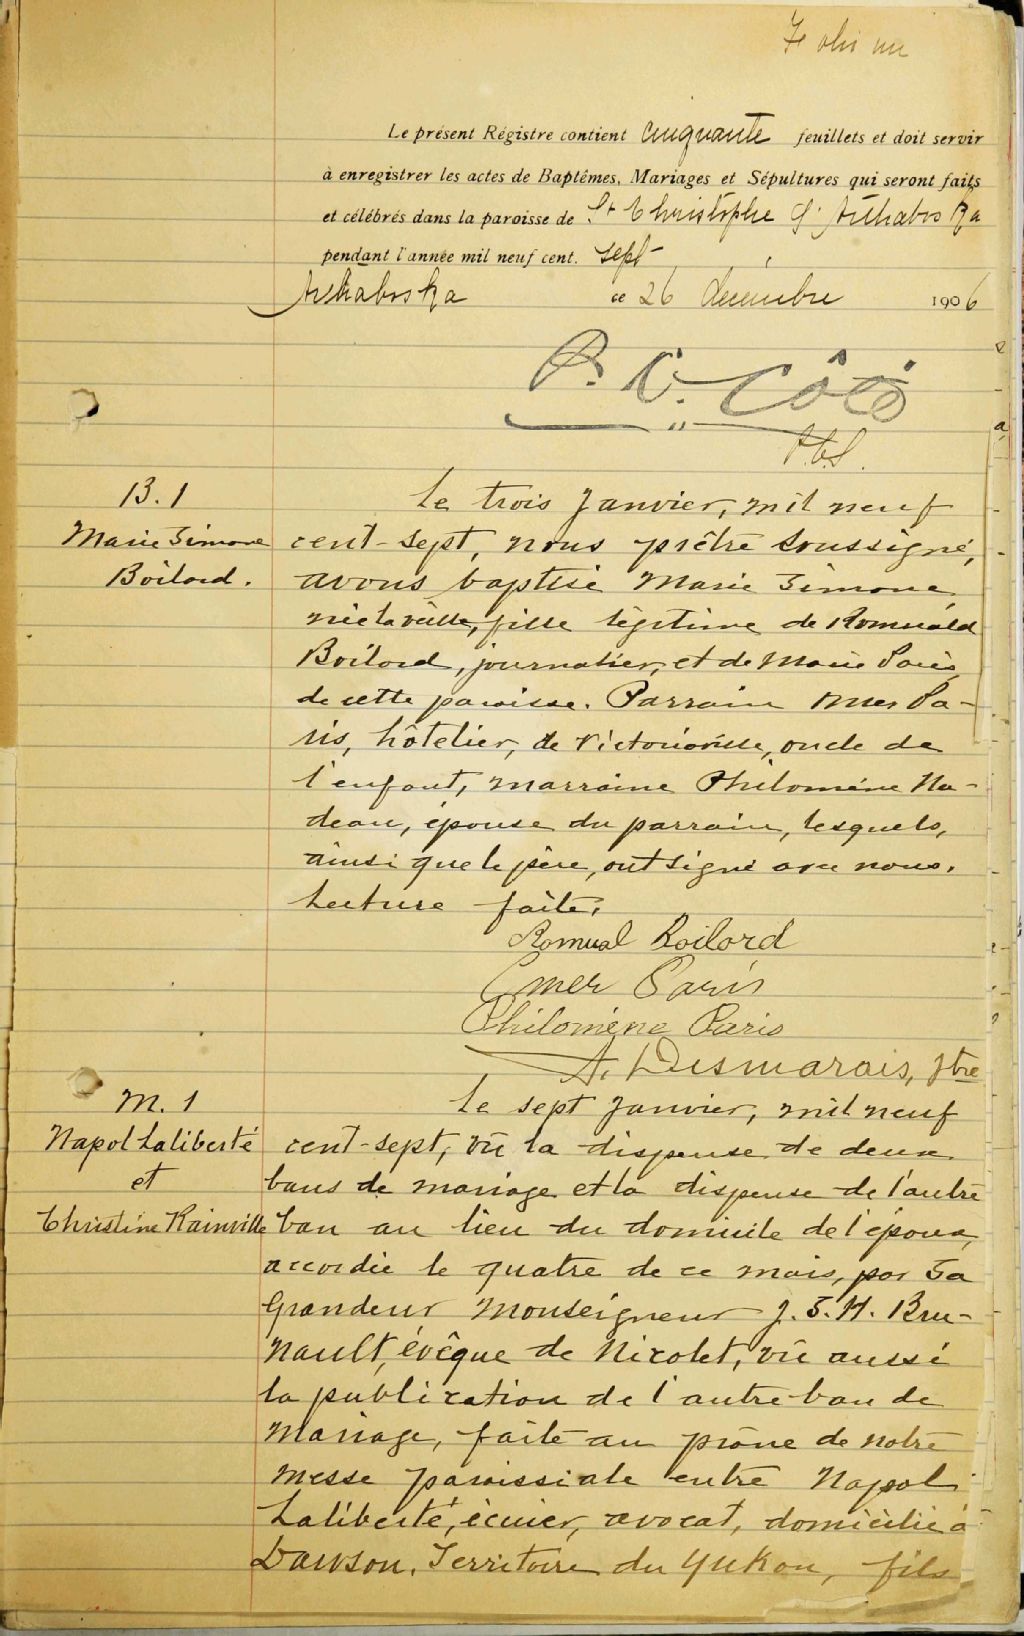 Folio un
Le présent Régistre contient cinquante feuillets et doit servir
à enregistrer les actes de Baptêmes, Mariages et Sépultures qui seront faits
et célébrés dans la paroisse de St Christophe d'Arthabaska
pendant l'année mil neuf cent. sept
Arthabaska ce 26 decembre 1906
P. C. Côté
P.C.S.
B. 1
Marie Simone
Boilard.
Le trois Janvier, mil neuf
cent-sept, nous prêtre soussigné,
avons baptisé Marie Simone
née la veille, fille légitime de Romuald
Boilard, journalier, et de Marie Paris
de cette paroisse. Parrain Omer Pa-
ris, hôtelier, de Victoriaville, oncle de
l'enfant, marraine Philomène Na-
deau, épouse du parrain, lesquels,
ainsi que le père, ont signé avec nous.
Lecture faite.
Romual Boilard
Omer Paris
Philomène Paris
A. Desmarais, ptre
M. 1
Napol Laliberté
et
Christine Rainville
Le sept Janvier, mil neuf
cent-sept, vû la dispense de deux
bans de mariage et la dispense de l'autre
ban au lieu du domicile de l'époux,
accordée le quatre de ce mois, par Sa
Grandeur Monseigneur J. S. H. Bru-
nault, évêque de Nicolet, vû aussi
la publication de l'autre ban de
Mariage, faite au prône de notre
messe paroissiale entre Napol
Laliberté, écuier, avocat, domicilié à
Dawson, Territoire du Yukon, fils